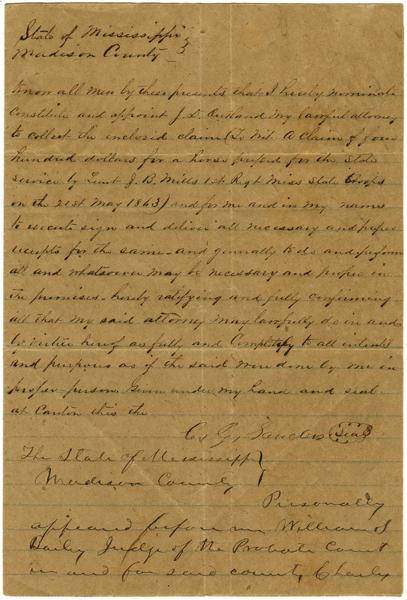 State of Mississippi }
Madison County }
Know all men by these presents that I hereby nominate
constitute and appoint J. D. my lawful attorney
to collect the enclosed claim (To Wit. A Claim of four
hundred dollars for a horse pressed for the State
service by Lieut J. B. Mills 1st Regt Miss State Troops
on the 21st May 1863) and for me and in my name
to execute sign and deliver all necessary and proper
receipts for the same and generally to do and perform
all and whatsoever may be necessary and proper in
the premises. hereby ratifying and fully confirming
all that my said attorney may lawfully do in and
by virtue hereof as fully and completely to all intents
and purposes as if the said were done by me in
proper person. Given under my hand and seal
at Canton this the
C. G. Sanders Seal
The State of Mississippi }
Madison County }
Personally
appeared before me William S
Bailey Judge of the Probate Court
in and for said county, Charles